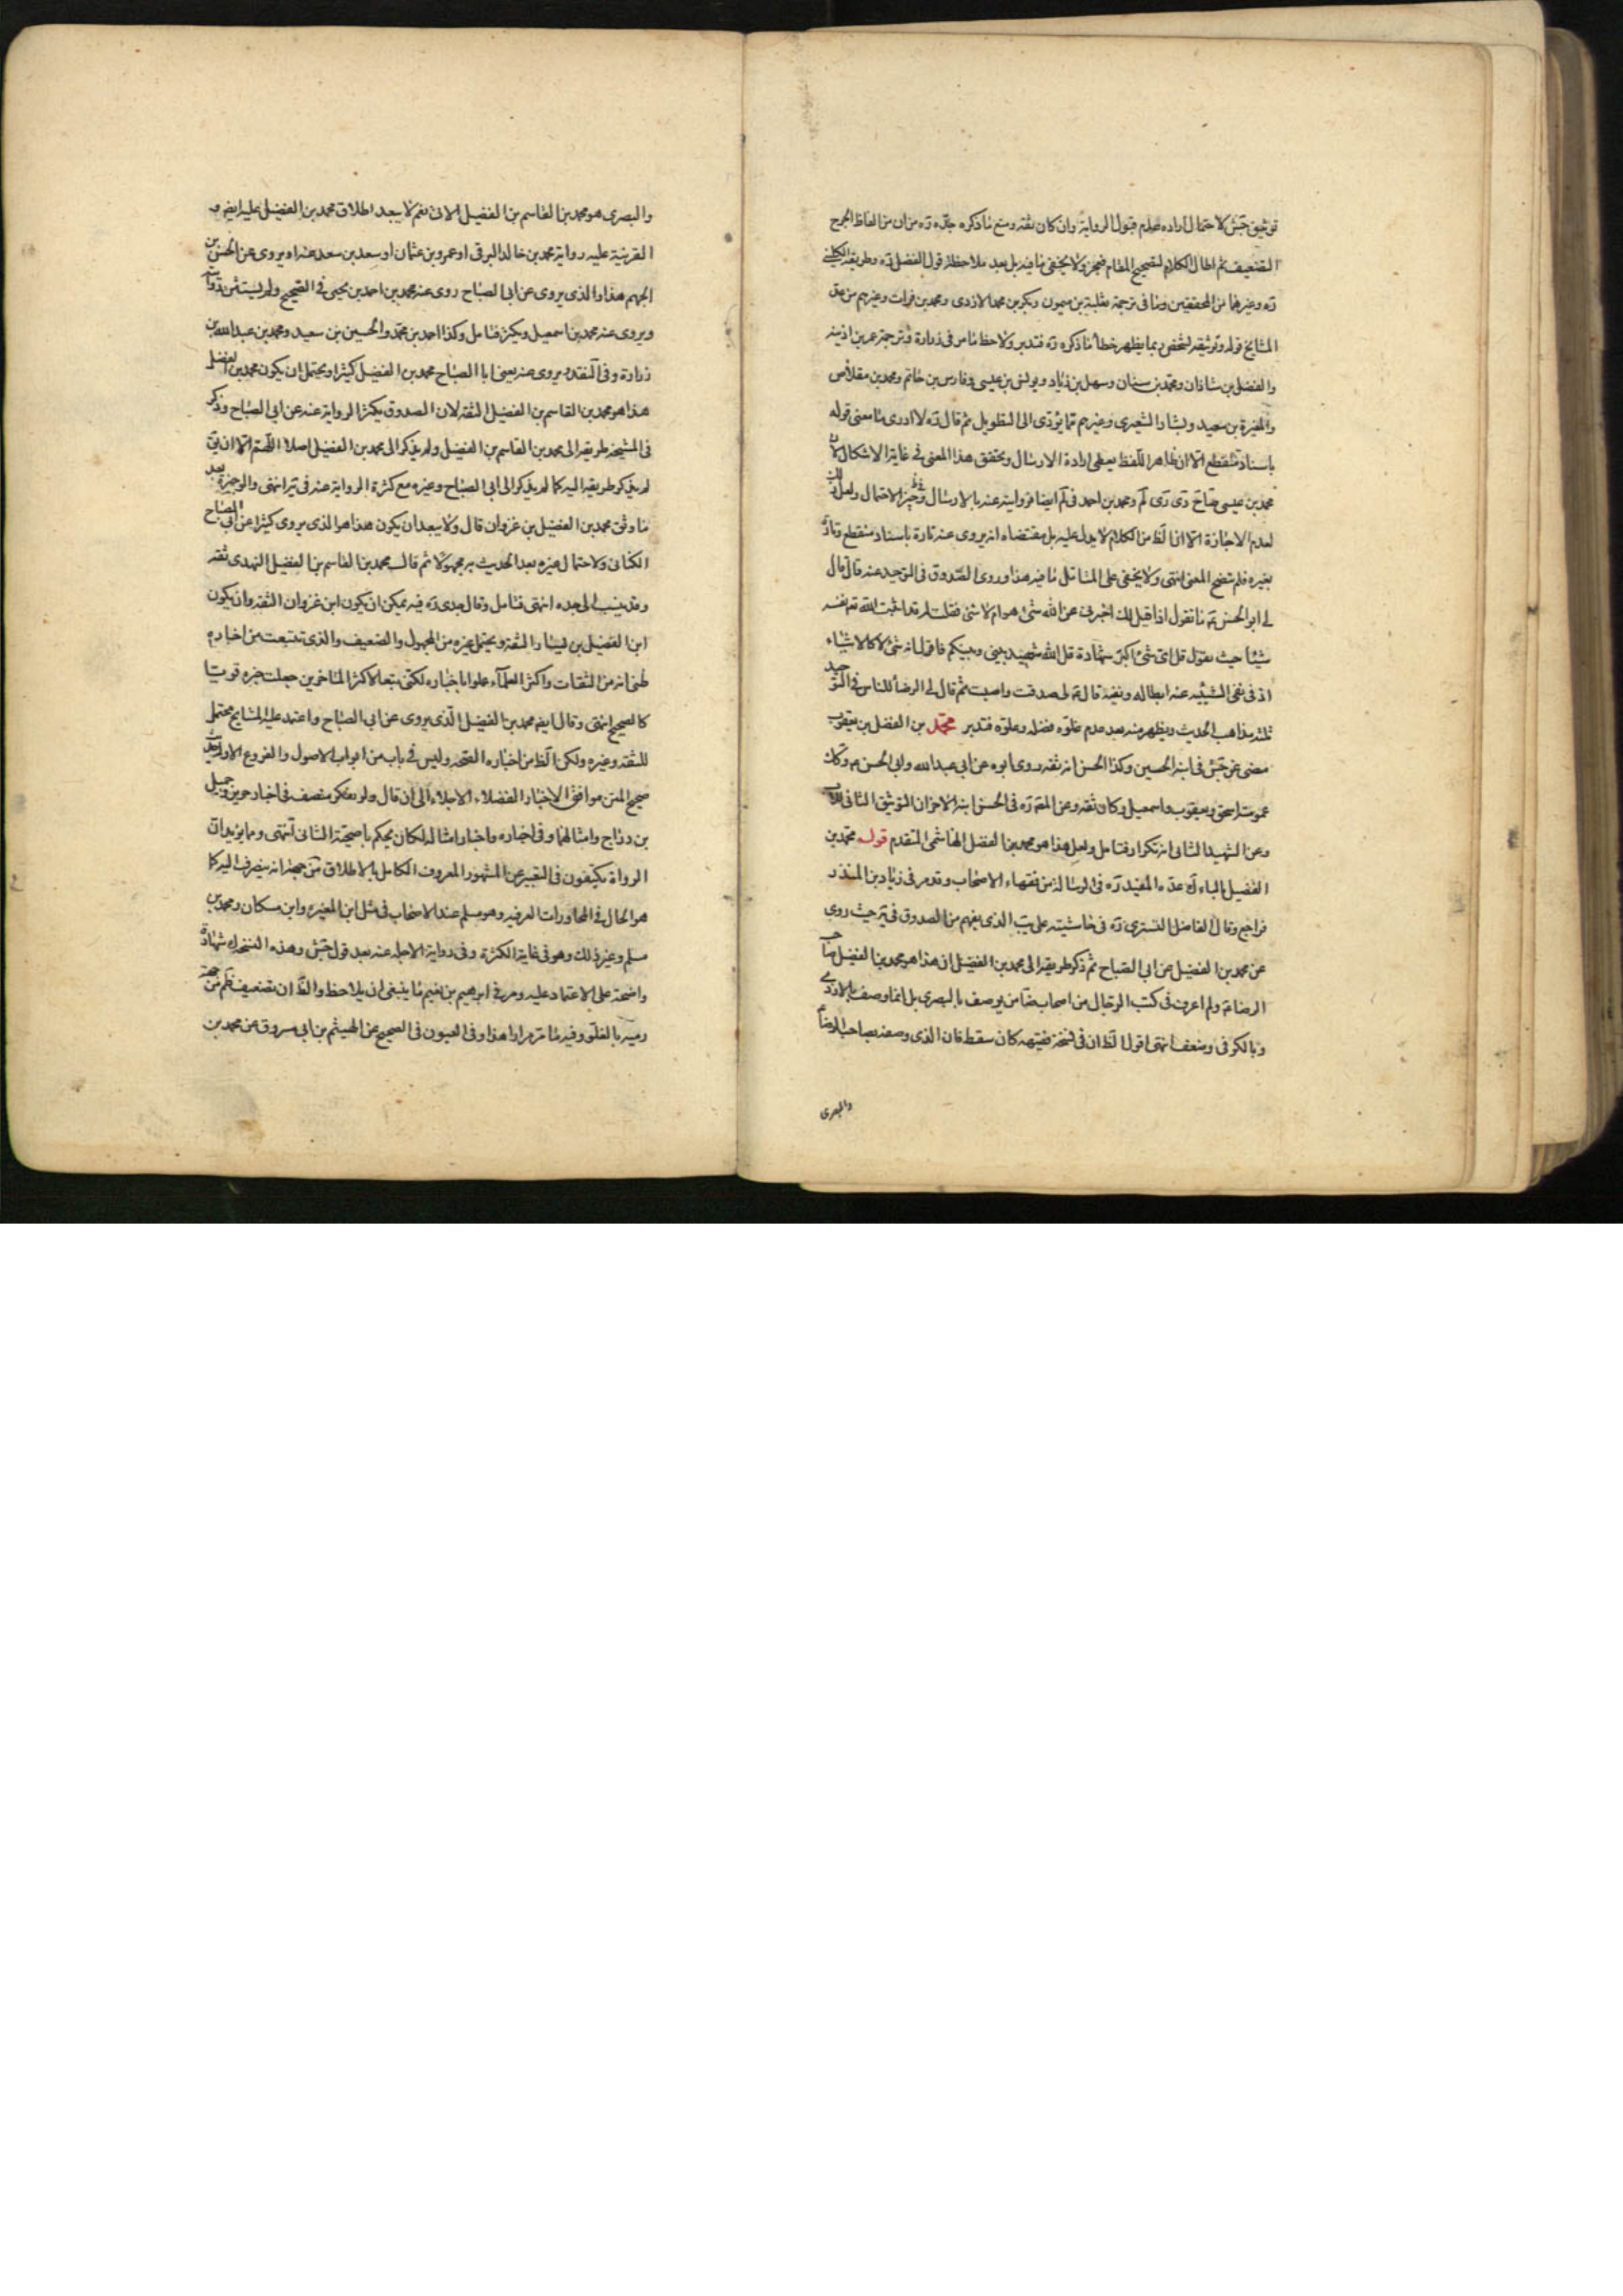 توثيق جش لاحتمال اراده عدم قبول الرواية وان كان ثقة ومنع ما ذكره جده ره من ان من الفاظ الجرح
التضعيف ثم اطال الكلام لتصحيح المقام فيحرر ولا يخفى ما فيه بل بعد ملاحظة قول الفضل ره وطريقة الكليني
ره وغيرهما من المحققين وما في ترجمة ثعلبة بن ميمون وبكر بن محمد الازدى ومحمد بن فرات وغيرهم من
المشايخ قوله وتوثيقه لشخص بما يظهر خطأ ما ذكره ره فتدبر ولاحظ ما مر في زرارة وترجمة عمر بن اذينه
والفضل بن شاذان ومحمد بن سنان وسهل بن زياد ويونس بن عيسى وفارس بن حاتم ومحمد بن مقلاص
والمغيرة بن سعيد وبشار الشعيرى وغيرهم مما يؤدى الى التطويل ثم قال ره لا ادرى ما معنى قوله
باسناد منقطع الا ان ظاهر اللفظ يعطى ارادة الارسال وتحقق هذا المعنى في غاية الاشكال لان
محمد بن عيسى صاحب دى رى لم ومحمد بن احمد في لم ايضا فروايته عنه بالارسال في حيز الاحتمال ولعل
لعدم الاجازة الا ان الظ من الكلام لا يدل عليه بل مقتضاه انه يروى عنه تارة باسناد منقطع وتارة
بغيره فلم يتضح المعنى انتهى ولا يخفى على المتامل ما فيه هذا وروى الصدوق في التوحيد عنه قال قال
لى ابو الحسن ع ما تقول اذا قيل لك اخبرنى عن الله شئ هو ام لا شئ فقلت له قد اثبت الله تع نفسه
شيئا حيث يقول قل اى شئ اكبر شهادة قل الله شهيد بينى وبينكم فاقول انه شئ لا كالاشياء
اذ في نفى الشيئيه عنه ابطاله ونفيه قال ع لى صدقت واصبت ثم قال لى الرضا ع للناس في التوحيد
ثلثه مذاهب الحديث ويظهر منه بعد عدم غلوه فضله وعلوه فتدبر محمد بن الفضل بن يعقوب
مضى عن جش في ابنه الحسين وكذا الحسن انه ثقه روى ابوه عن ابى عبد الله وابى الحسن ع وكان
عمومته اسحق ويعقوب واسمعيل وكان ثقه وعن المقه ره في الحسن ابنه الاخر ان التوثيق الثانى للاب
وعن الشهيد الثانى انه تكرار فتامل ولعل هذا هو محمد بن الفضل الهاشمى المتقدم قوله محمد بن
الفضيل بالياء لك عده المفيد ره في الرسالة من فقهاء الاصحاب وقد مر في زياد بن المنذر
فراجع وقال الفاضل التسترى ره في حاشيته على يب الذى يفهم من الصدوق في حيث روى
عن محمد بن الفضيل عن ابى الصباح ثم ذكر طريقه الى محمد بن الفضيل ان هذا هو محمد بن الفضيل صاحب
الرضا ع ولم اعرف في كتب الرجال من اصحاب ضا من يوصف بالبصرى بل انما وصف بالازدى
وبالكوفى وضعف انتهى اقول الظ ان في نسخة فقيهه كان سقط فان الذى وصفه بصاحب الرضا ع
والبصرى
والبصرى هو محمد بن القاسم بن الفضيل الاتى نعم لا يبعد اطلاق محمد بن الفضيل عليه ايضا و
القرينة عليه رواية محمد بن خالد البرقى او عمرو بن عثمان او سعد بن سعد عنه او يروى عن الحسن بن
الجهم هذا والذى يروى عن ابى الصباح روى عنه محمد بن احمد بن يحيى في الصحيح ولم يستثن من رواته
ويروى عنه محمد بن اسمعيل ويكثر فتامل وكذا احمد بن محمد والحسين بن سعيد ومحمد بن عبد الله بن
زرارة وفي النقد يروى عنه يعنى ابا الصباح محمد بن الفضيل كثيرا ويحتمل ان يكون محمد بن الفضيل
هذا هو محمد بن القاسم بن الفضيل الثقه لان الصدوق يكثر الرواية عنه عن ابى الصباح وذكر
في المشيخه طريقه الى محمد بن القاسم بن الفضيل ولم يذكر الى محمد بن الفضيل اصلا اللهم الا ان يق
لم يذكر طريقه اليه كما لم يذكر الى ابى الصباح وغيره مع كثرة الرواية عنه في انتهى والوجيزة بعد
ما وثق محمد بن الفضيل بن غزوان قال ولا يبعد ان يكون هذا هو الذى يروى كثيرا عن ابى الصباح
الكنانى ولاحتمال غيره يعد الحديث به مجهولا ثم قال محمد بن القاسم بن الفضيل النهدى ثقه
وقد ينسب الى جده انتهى فتامل وقال جدى ره فيه يمكن ان يكون ابن غزوان الثقه وان يكون
ابن الفضيل بن يسار الثقه ويحتمل غيره من المجهول والضعيف والذى تتبعت من اخباره
ظنى انه من الثقات واكثر العلماء عملوا باخباره لكنى تبعا لاكثر المتاخرين جعلت خبره قويا
كالصحيح انتهى وقال ايضا محمد بن الفضيل الذى يروى عن ابى الصباح واعتمد عليه المشايخ محتمل
للثقه وغيره ولكن الظ من اخباره الصحه وليس في باب من ابواب الاصول والفروع الاوله
صحيح المتن موافق الاخبار الفضلاء الاجلاء الى ان قال ولو تفكر منصف في اخبار حريز وجميل
بن دراج وامثالهما وفي اخباره واخبار امثاله لكان يحكم باصحية الثانى انتهى ومما يؤيد ان
الرواة يكتفون في التعبير عن المشهور المعروف الكامل بالاطلاق من جهة انه ينصرف اليه كما
هو الحال في المحاورات العرفيه وهو مسلم عند الاصحاب في مثل ابن المغيره وابن مسكان ومحمد بن
مسلم وغير ذلك وهو في غاية الكثرة وفى رواية الاجله عنه بعد قول جش وهذه النسخه شهادة
واضحة على الاعتماد عليه ومر في ابرهيم بن نعيم ما ينبغى ان يلاحظ والظ ان تضعيف ظم من جهة
رميه بالغلو وفيه ما مر مرارا هذا وفي العيون في الصحيح عن الهيثم بن ابى مسروق عن محمد بن